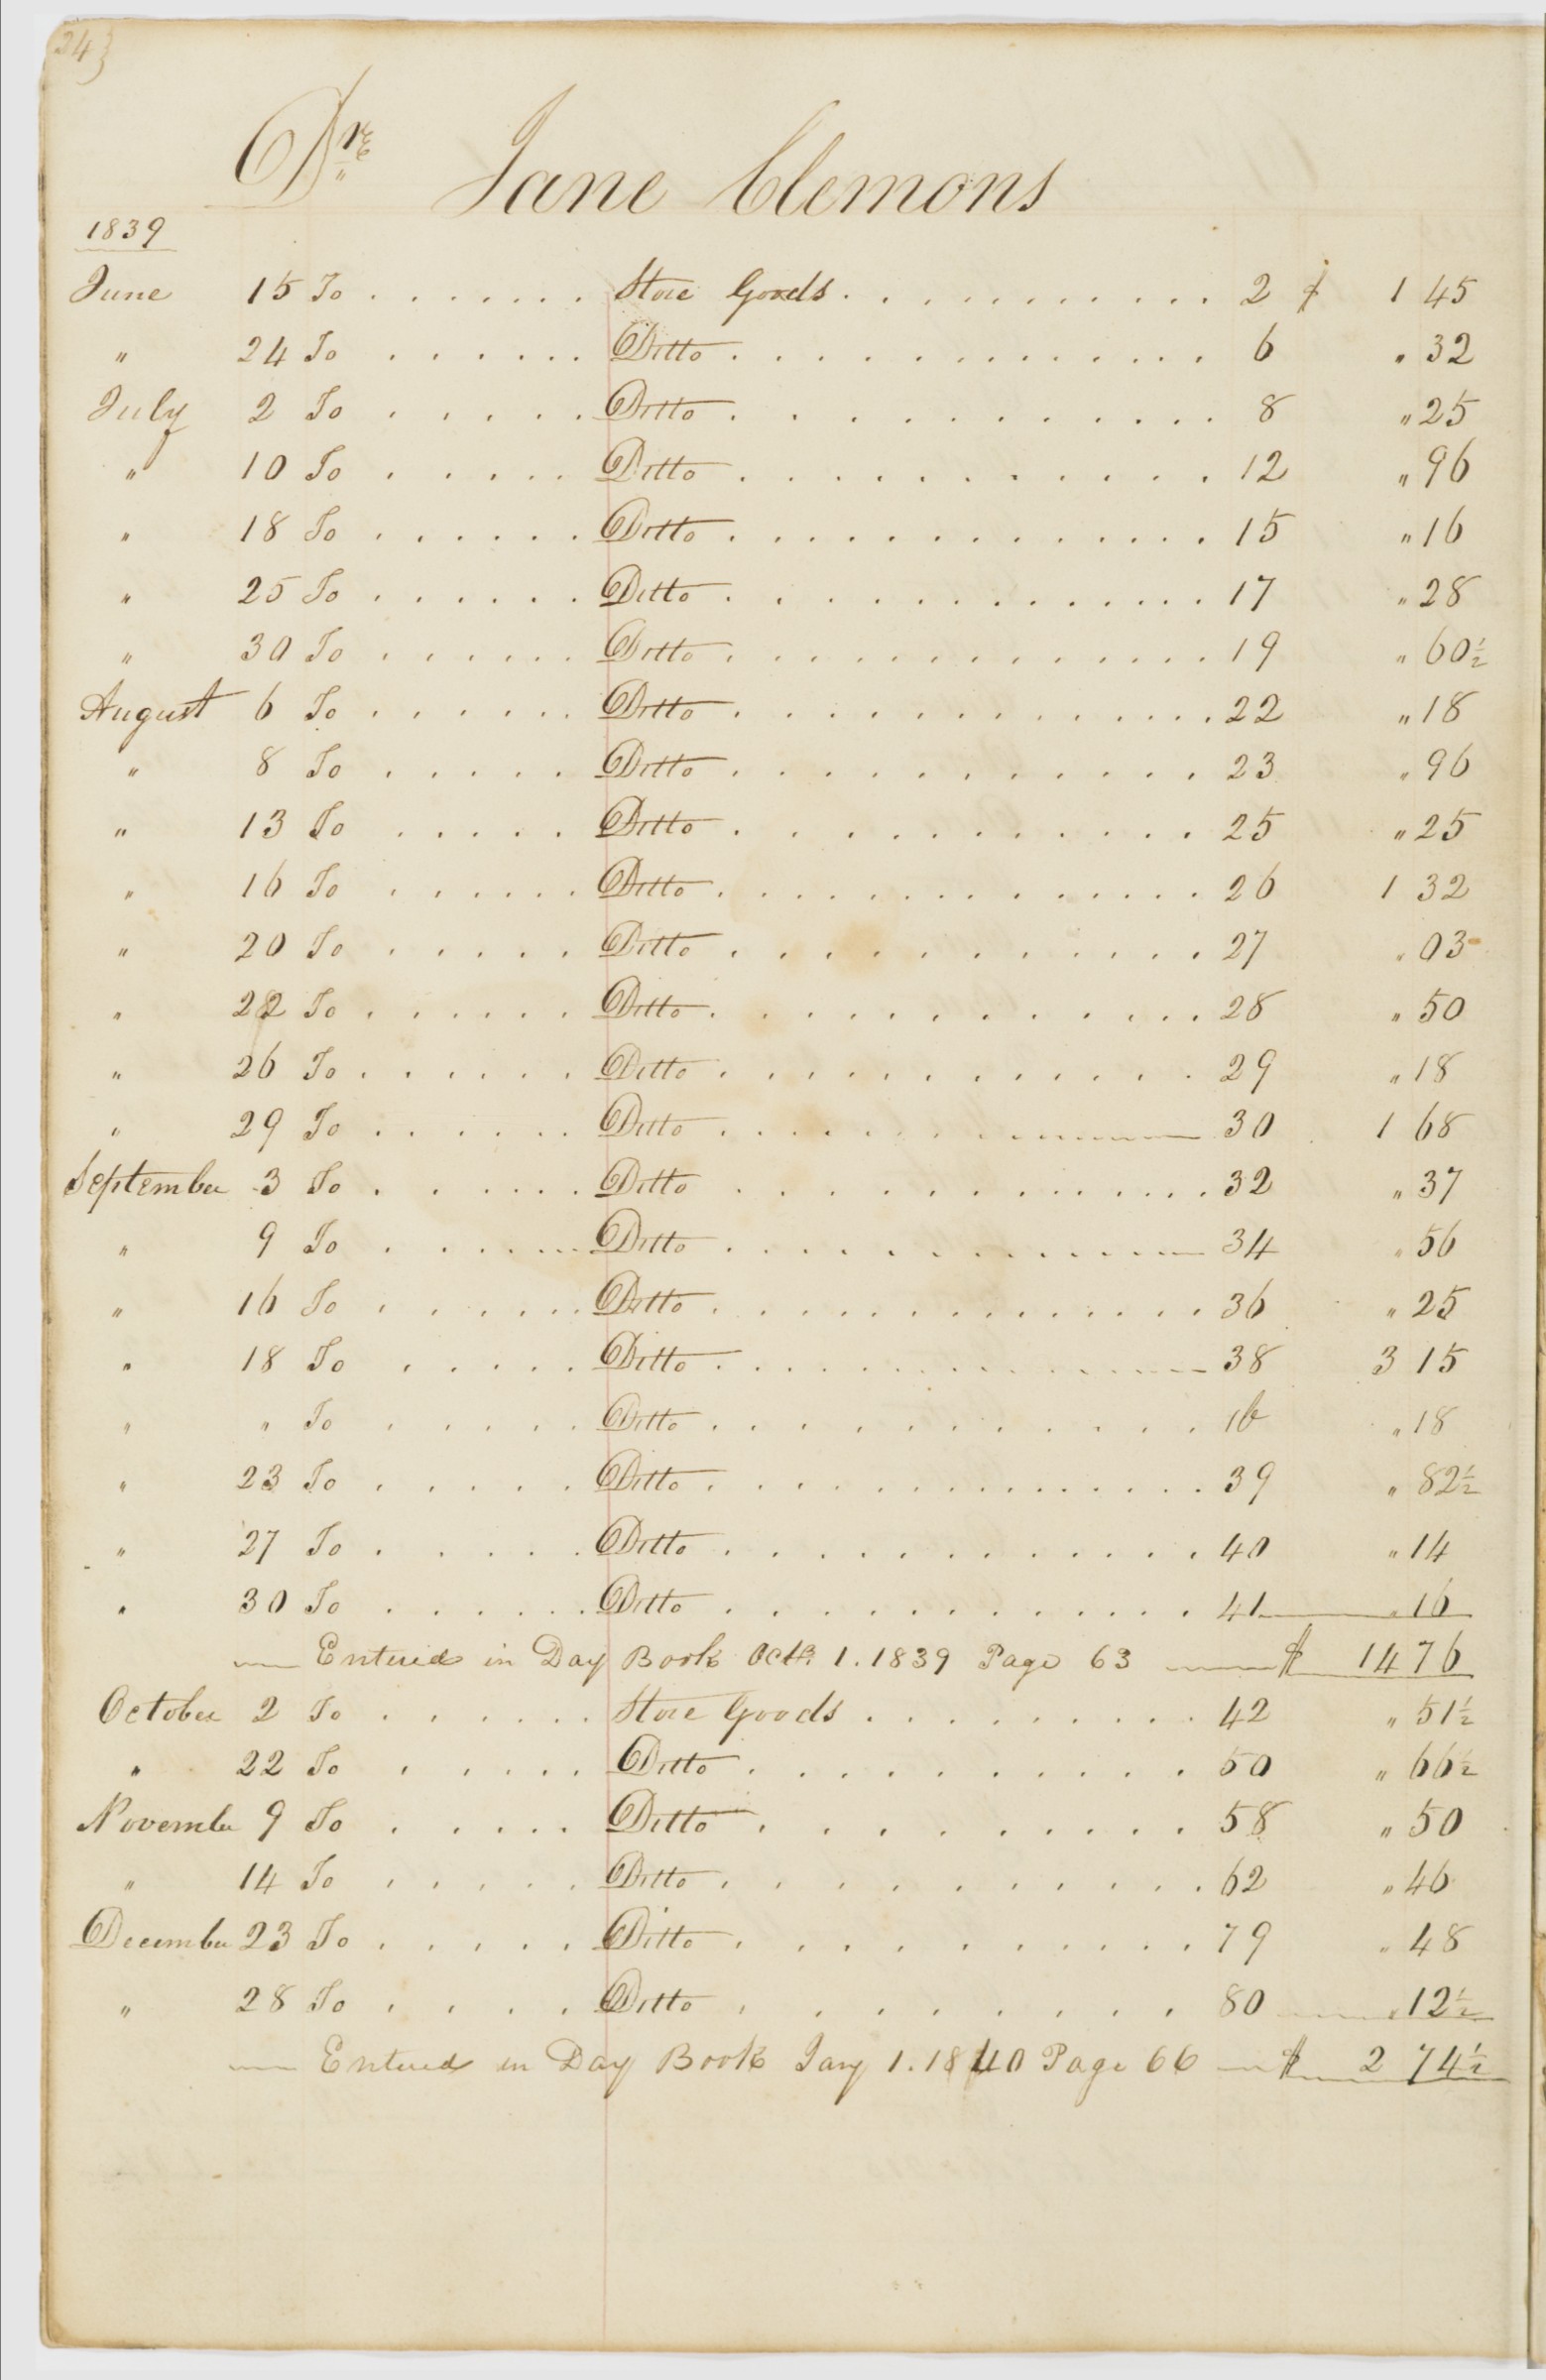 24}
Dr. Jane Clemons
1839
June 15 To . . . . . . . Store Goods . . . . . . . . . . . 2 $ 1 45
" 24 To . . . . . . Ditto . . . . . . . . . . . . . 6 " 32
July 2 To . . . . . Ditto . . . . . . . . . . . 8 " 25
" 10 To . . . . . Ditto . . . . . . . . . . . 12 " 96
" 18 To . . . . . . Ditto . . . . . . . . . . . . . 15 " 16
" 25 To . . . . . . Ditto . . . . . . . . . . . . . 17 " 28
" 30 To . . . . . . Ditto . . . . . . . . . . . . . 19 " 60½
August 6 To . . . . . . Ditto . . . . . . . . . . . . . 22 " 18
" 8 To . . . . . Ditto . . . . . . . . . . . 23 " 96
" 13 To . . . . . Ditto . . . . . . . . . . . 25 " 25
" 16 To . . . . . . Ditto . . . . . . . . . . . . . 26 1 32
" 20 To . . . . . Ditto . . . . . . . . . . . 27 " 03
" 22 To . . . . . . Ditto . . . . . . . . . . . . 28 " 50
" 26 To . . . . . . Ditto . . . . . . . . . . . . 29 " 18
" 29 To . . . . . . Ditto . . . . . . . . . . . . 30 1 68
September 3 To . . . . . . Ditto . . . . . . . . . . . . . 32 " 37
" 9 To . . . . . . Ditto . . . . . . . . . . . . 34 " 56
" 16 To . . . . . . Ditto . . . . . . . . . . . . . 36 " 25
" 18 To . . . . . Ditto . . . . . . . . . . . . . 38 3 15
" " To . . . . . Ditto . . . . . . . . . . . ib " 18
" 23 To . . . . . Ditto . . . . . . . . . . . . . 39 " 82½
" 27 To . . . . . Ditto . . . . . . . . . . . . 40 " 14
" 30 To . . . . . . Ditto . . . . . . . . . . . . 41 " 16
Entered in Day Book Oct. 1. 1839 Page 63 $ 14 76
October 2 To . . . . . . Store Goods . . . . . . . . . 42 " 51½
" 22 To . . . . . Ditto . . . . . . . . . . 50 " 66½
November 9 To . . . . . Ditto . . . . . . . . . 58 " 50
" 14 To . . . . . Ditto . . . . . . . . . . . 62 " 46
December 23 To . . . . . Ditto . . . . . . . . . . 79 " 48
" 28 To . . . . Ditto . . . . . . . . 80 " 12½
Entered in Day Book Jany 1. 1840 Page 66 $ 2 74½